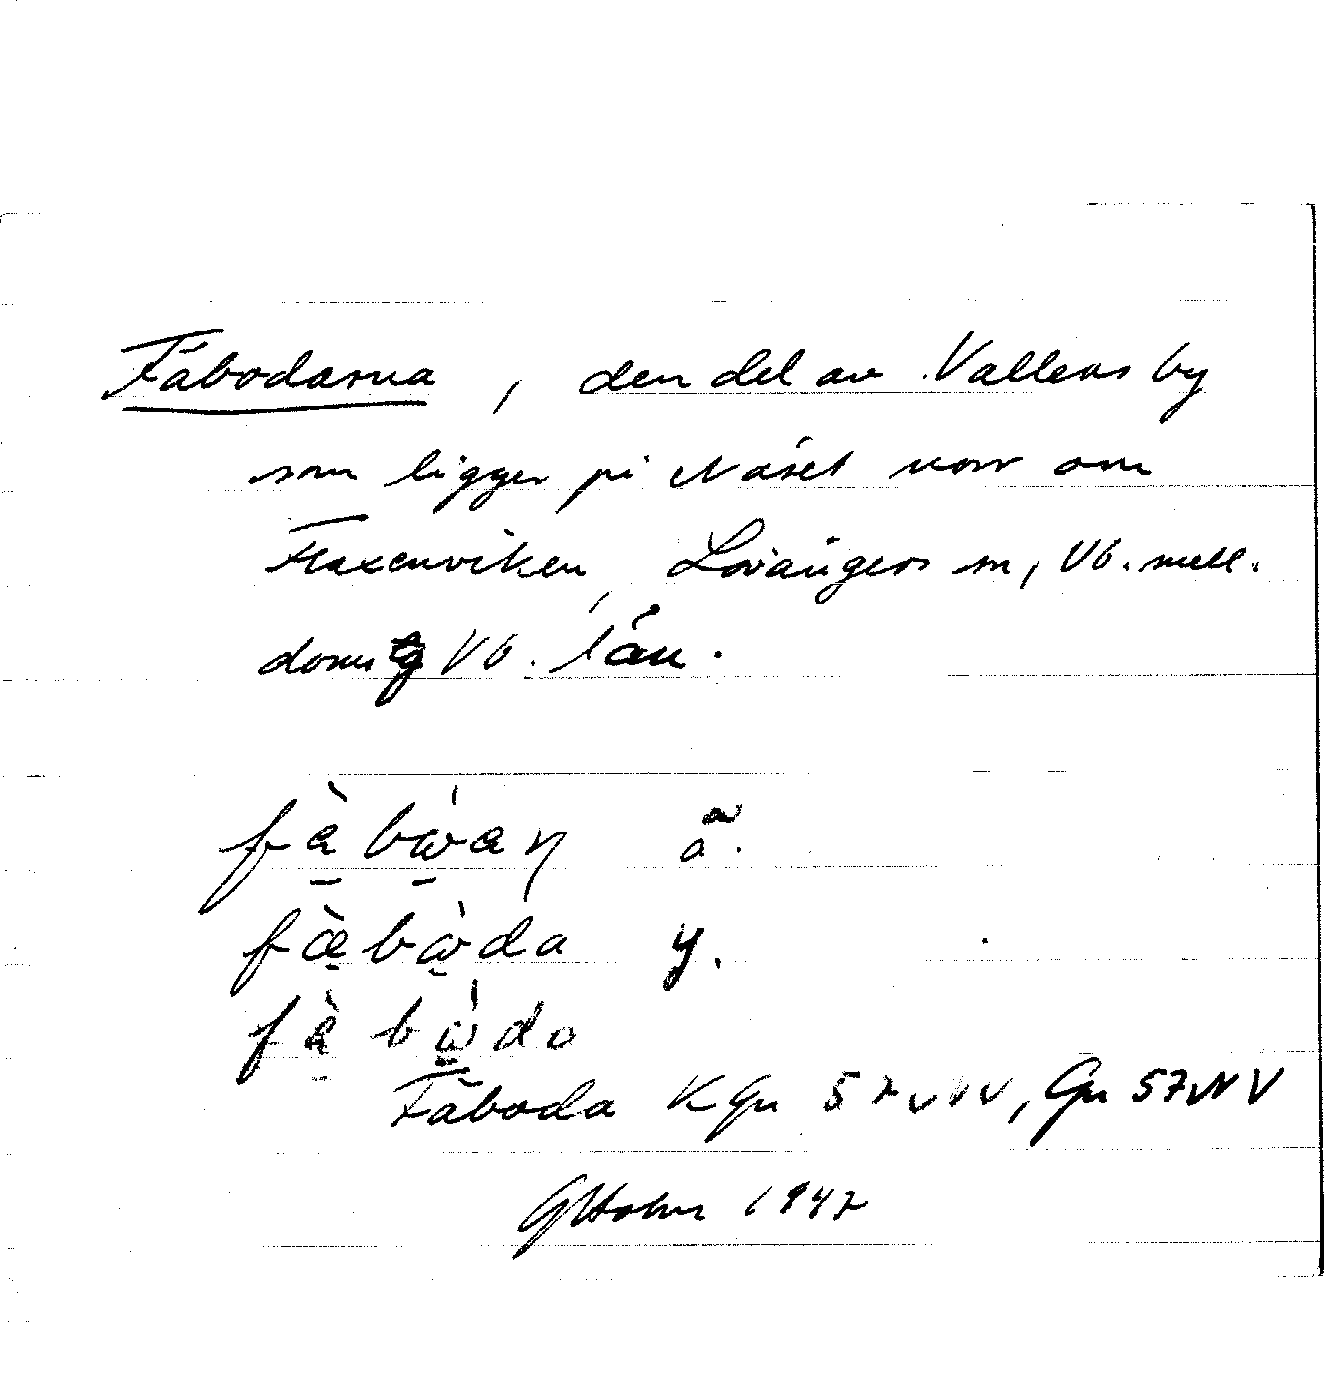 Fäbodarna, den del av Vallens by
som ligger på Näset norr om
Flaxenviken, Lövångers sn, Vb. mell.
doms Vb. län.
fàbẁaŋ ä.
fæ̀bẁda y.
fàbẁda
Fäboda K Gn 57 NV, Gn 57 NV
GHolm 1947